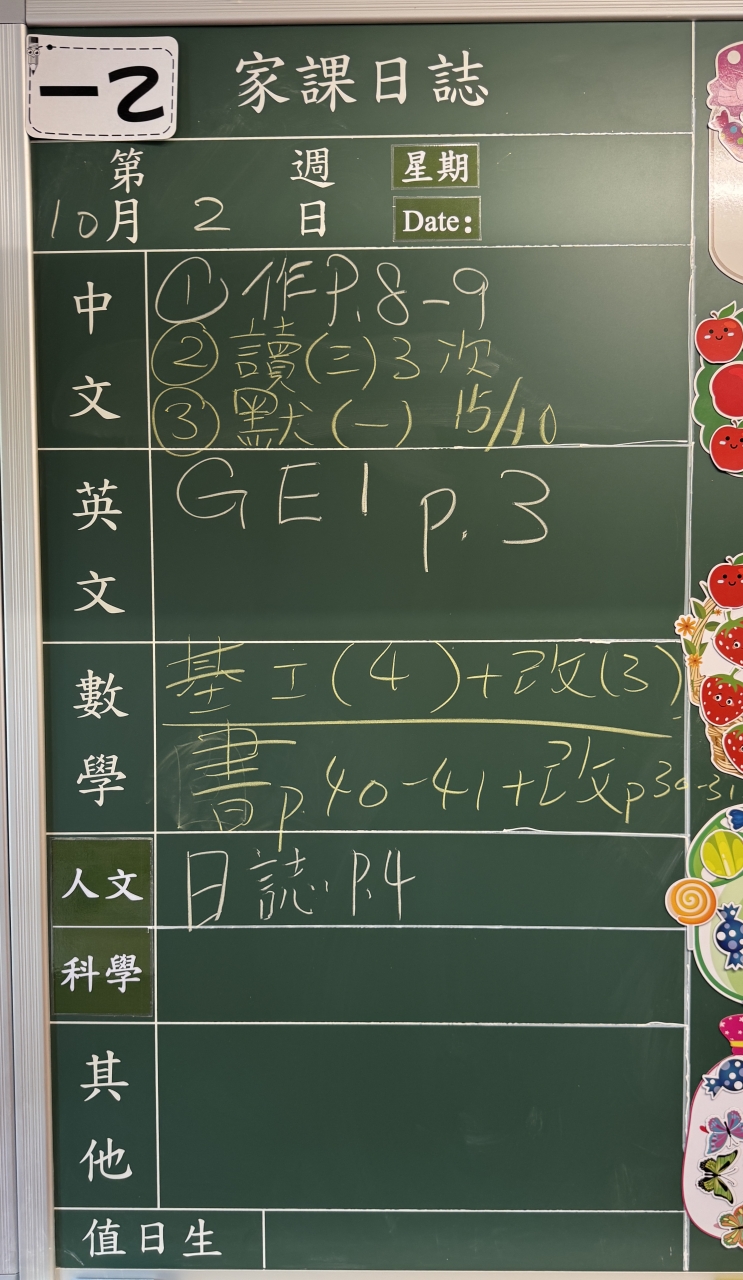 一乙
家課日誌
第 週 星期
10月 2 日 Date:
中文
① 作P.8-9
② 讀(三)3次
③ 默(一) 15/10
英文
GE1 p.3
數學
基工(4)+改(3)
書p40-41+改p30-31
人文
日誌 P.4
科學
其他
值日生